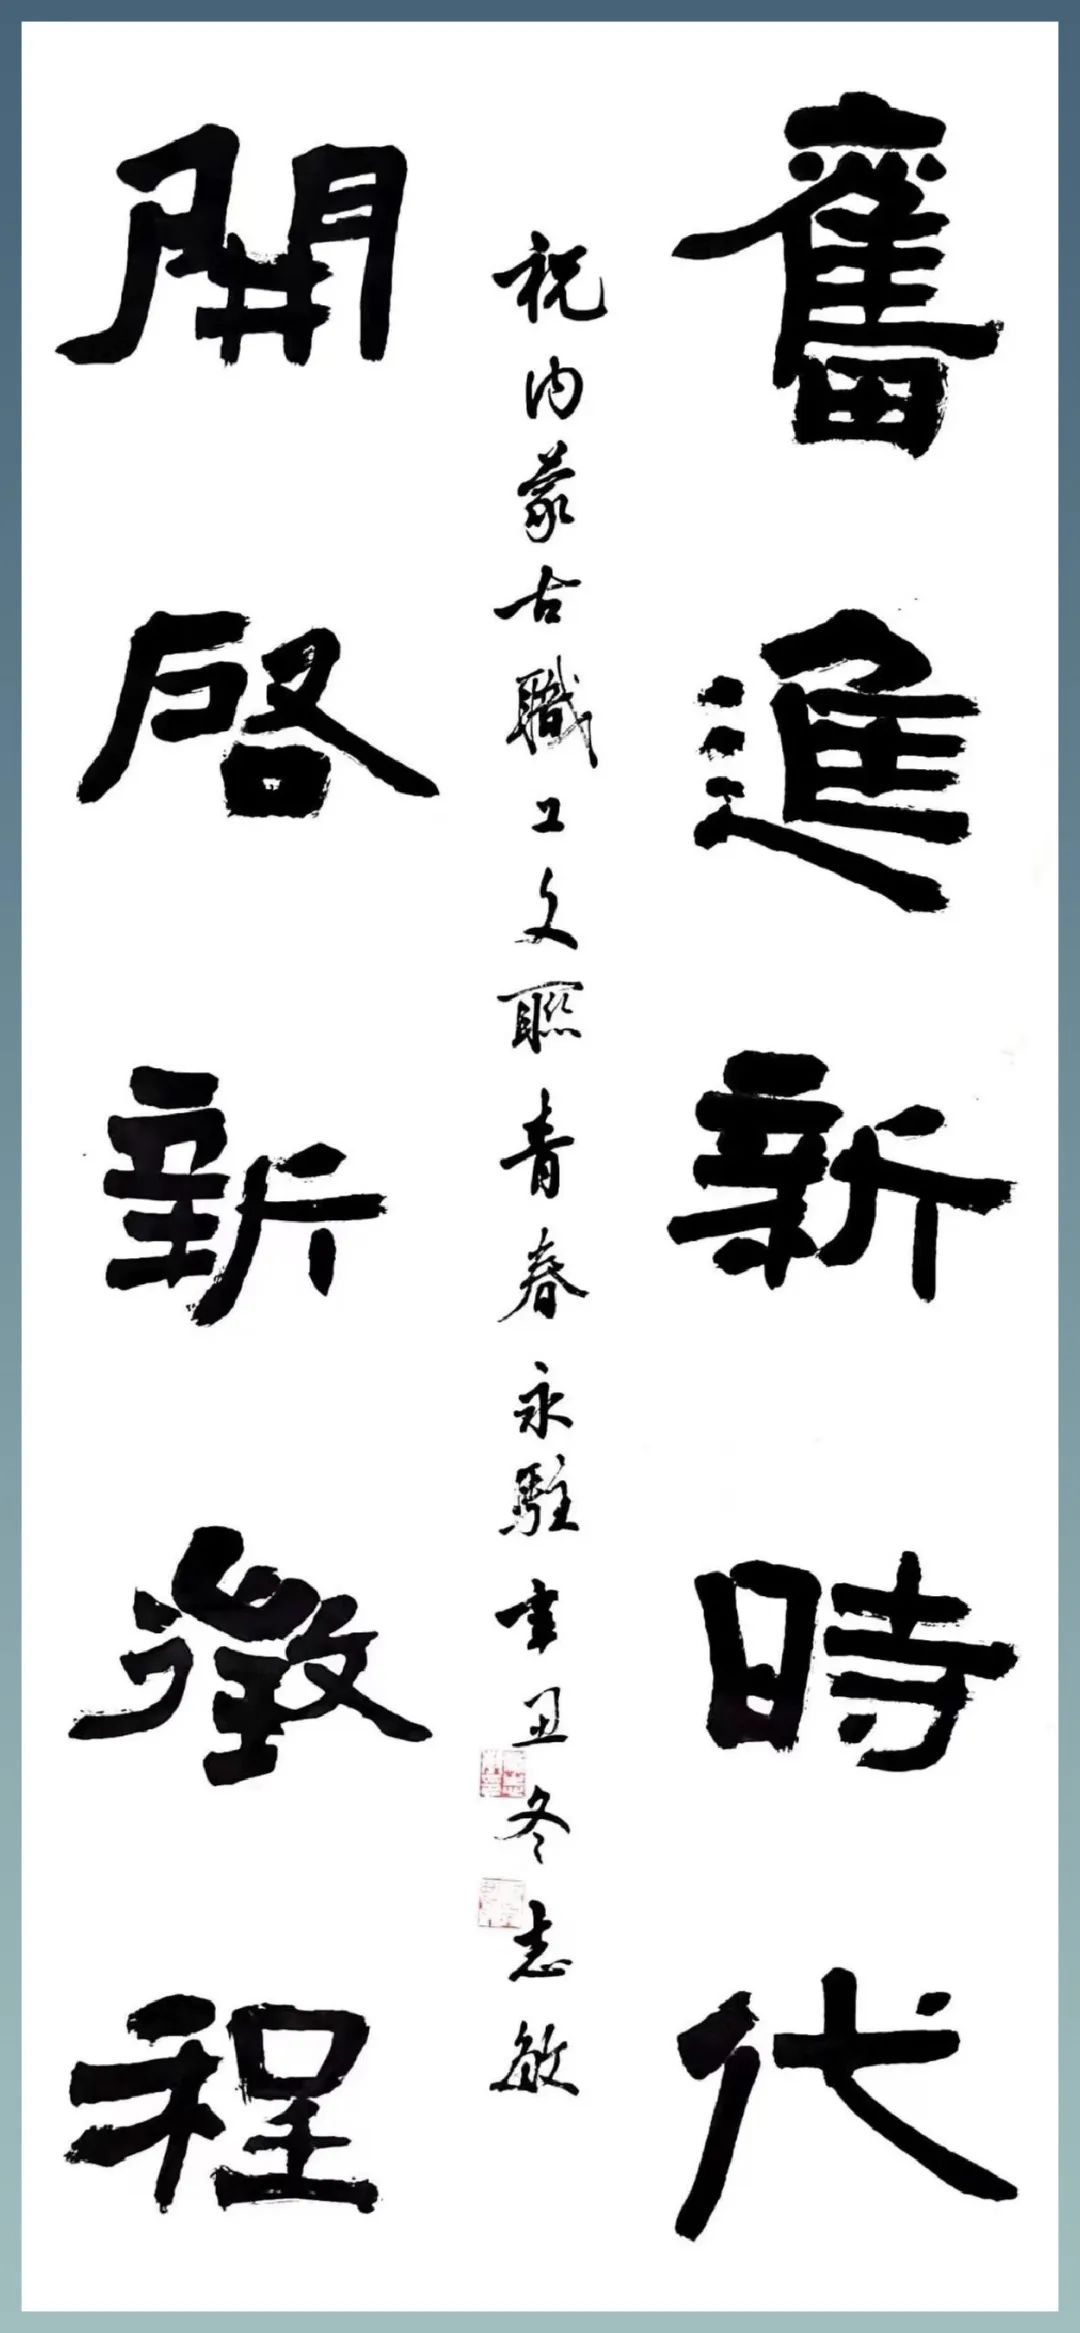 奮進新時代
開啓新徵程
祝内蒙古職工文聯青春永駐辛丑冬志敏